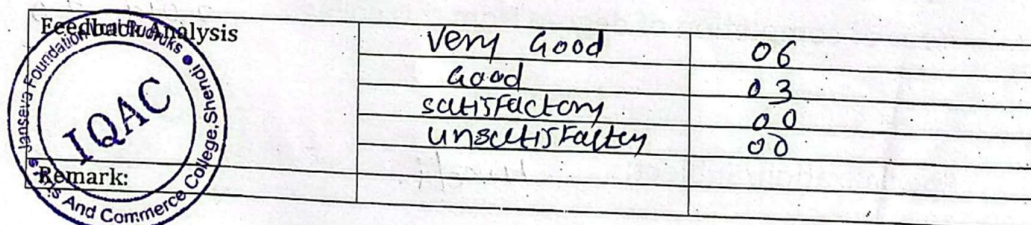 Feedback Analysis
Very Good 06
Good 03
satisfactory 00
unsatisfactory 00
Remark:
Janseva Foundation Loni Budruks
IQAC
Arts And Commerce College, Shendi